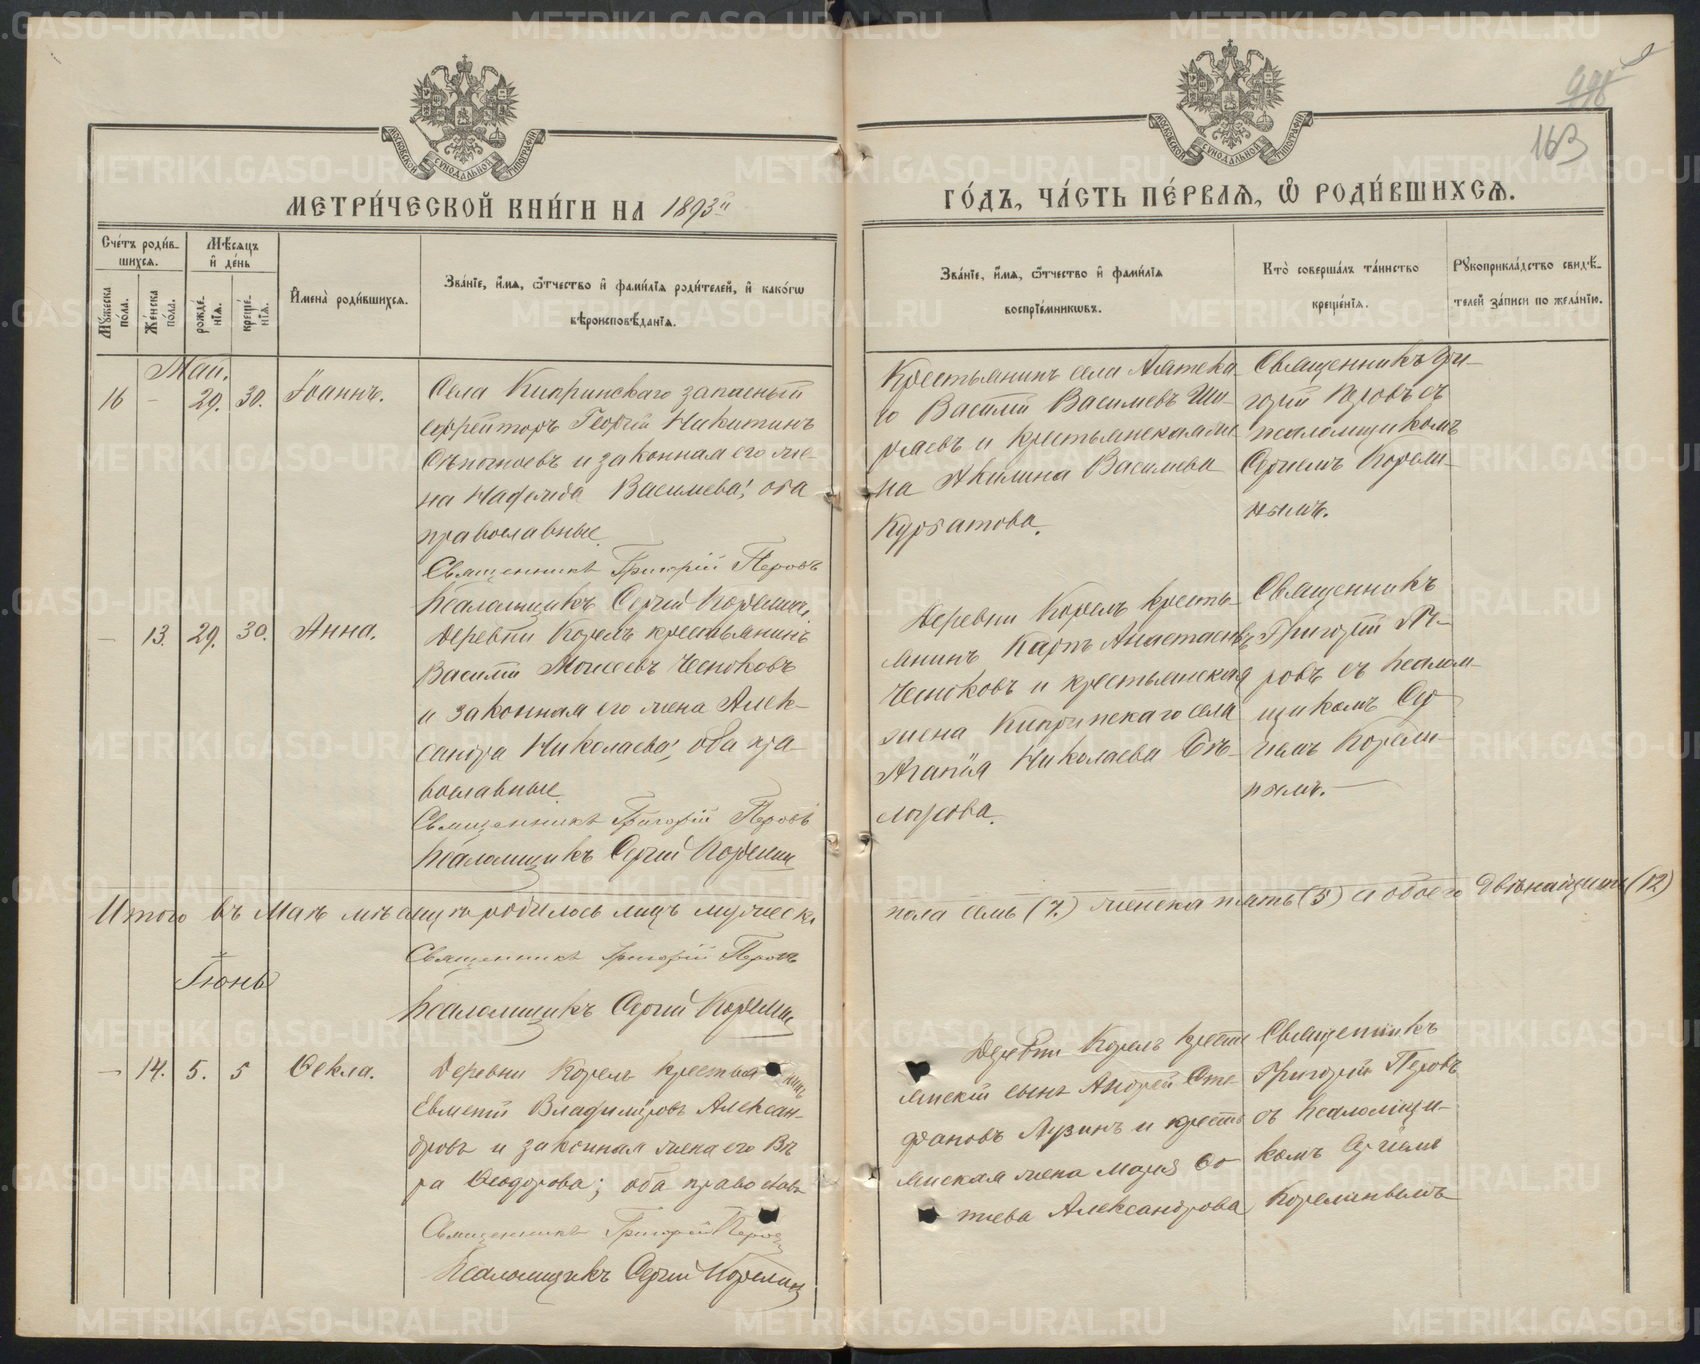 МЕТРИ́ЧЕСКОЙ КНИ́ГИ НА 1893й
ГО́ДЪ, ЧА́СТЬ ПЕ́РВАЯ, Ѡ РОДИ́ВШИХСЯ.
163
МОСКОВСКОЙ СѴНОДАЛЬНОЙ ТИПОГРАФІИ
МОСКОВСКОЙ СѴНОДАЛЬНОЙ ТИПОГРАФІИ
Сче́тъ роди́в-
шихся.
Мꙋ́жеска пола.
Же́нска по́ла.
Мѣ́сяцъ
и҆ де́нь
рожде́-
нїя.
креще́-
нїя.
И҆мена̀ роди́вшихся.
Зва́нїе, и҆́мя, ѻ҆́тчество и҆ фами́лїя роди́телей, и҆ како́гѡ
вѣроисповѣ́данїя.
Зва́нїе, и҆́мя, ѻ҆́тчество и҆ фами́лїя
воспрїе́мникѡвъ.
Кто̀ соверша́лъ та́инство
креще́нїя.
Рꙋкоприкла́дство свидѣ́-
телей за́писи по жела́нїю.
Май.
16 - 29. 30. Іоаннъ.
Села Кипринскаго запасный
ефрейторъ Георгій Никитинъ
и законная его же-
на Васильева, оба
православные.
Священникъ Григорій Перовъ
Псаломщикъ Сергій Корелинъ
Крестьянинъ села Аятска-
го Василій Васильевъ
и крестьянская же-
на Акилина Васильева
Курбатова.
Священникъ Гри-
горій Перовъ съ
псаломщикомъ
Сергіемъ Корели-
нымъ.
- 13. 29. 30. Анна.
Деревни Корелъ крестьянинъ
Василій Моисеевъ Чесноковъ
и законная его жена Алек-
сандра Николаева, оба пра-
вославные.
Священникъ Григорій Перовъ
Псаломщикъ Сергій Корелинъ
Деревни Корелъ кресть-
янинъ Карпъ
Чесноковъ и крестьянская
жена Кипринскаго села
Агапія Николаева
Священникъ
Григорій Пе-
ровъ съ псалом-
щикомъ Сер-
гіемъ Корели-
нымъ.
Итого въ Маѣ мѣсяцѣ родилось лицъ мужеска
пола семь (7.) женска пять (5) а обоего двѣнадцать (12)
Священникъ Григорій Перовъ
Псаломщикъ Сергій Корелинъ
Іюнь
- 14. 5. 5 Ѳекла.
Деревни Корелъ крестьянинъ
Евменій Владиміровъ Алексан-
дровъ и законная жена его Вѣ-
ра Ѳеодорова; оба православн.
Священникъ Григорій Перовъ
Псаломщикъ Сергій Корелинъ
Деревни Корелъ кресть-
янскій сынъ Андрей Сте-
фановъ Лузинъ и кресть-
янская жена Марія
Александрова
Священникъ
Григорій Перовъ
съ псаломщи-
комъ Сергіемъ
Корелинымъ
METRIKI.GASO-URAL.RU